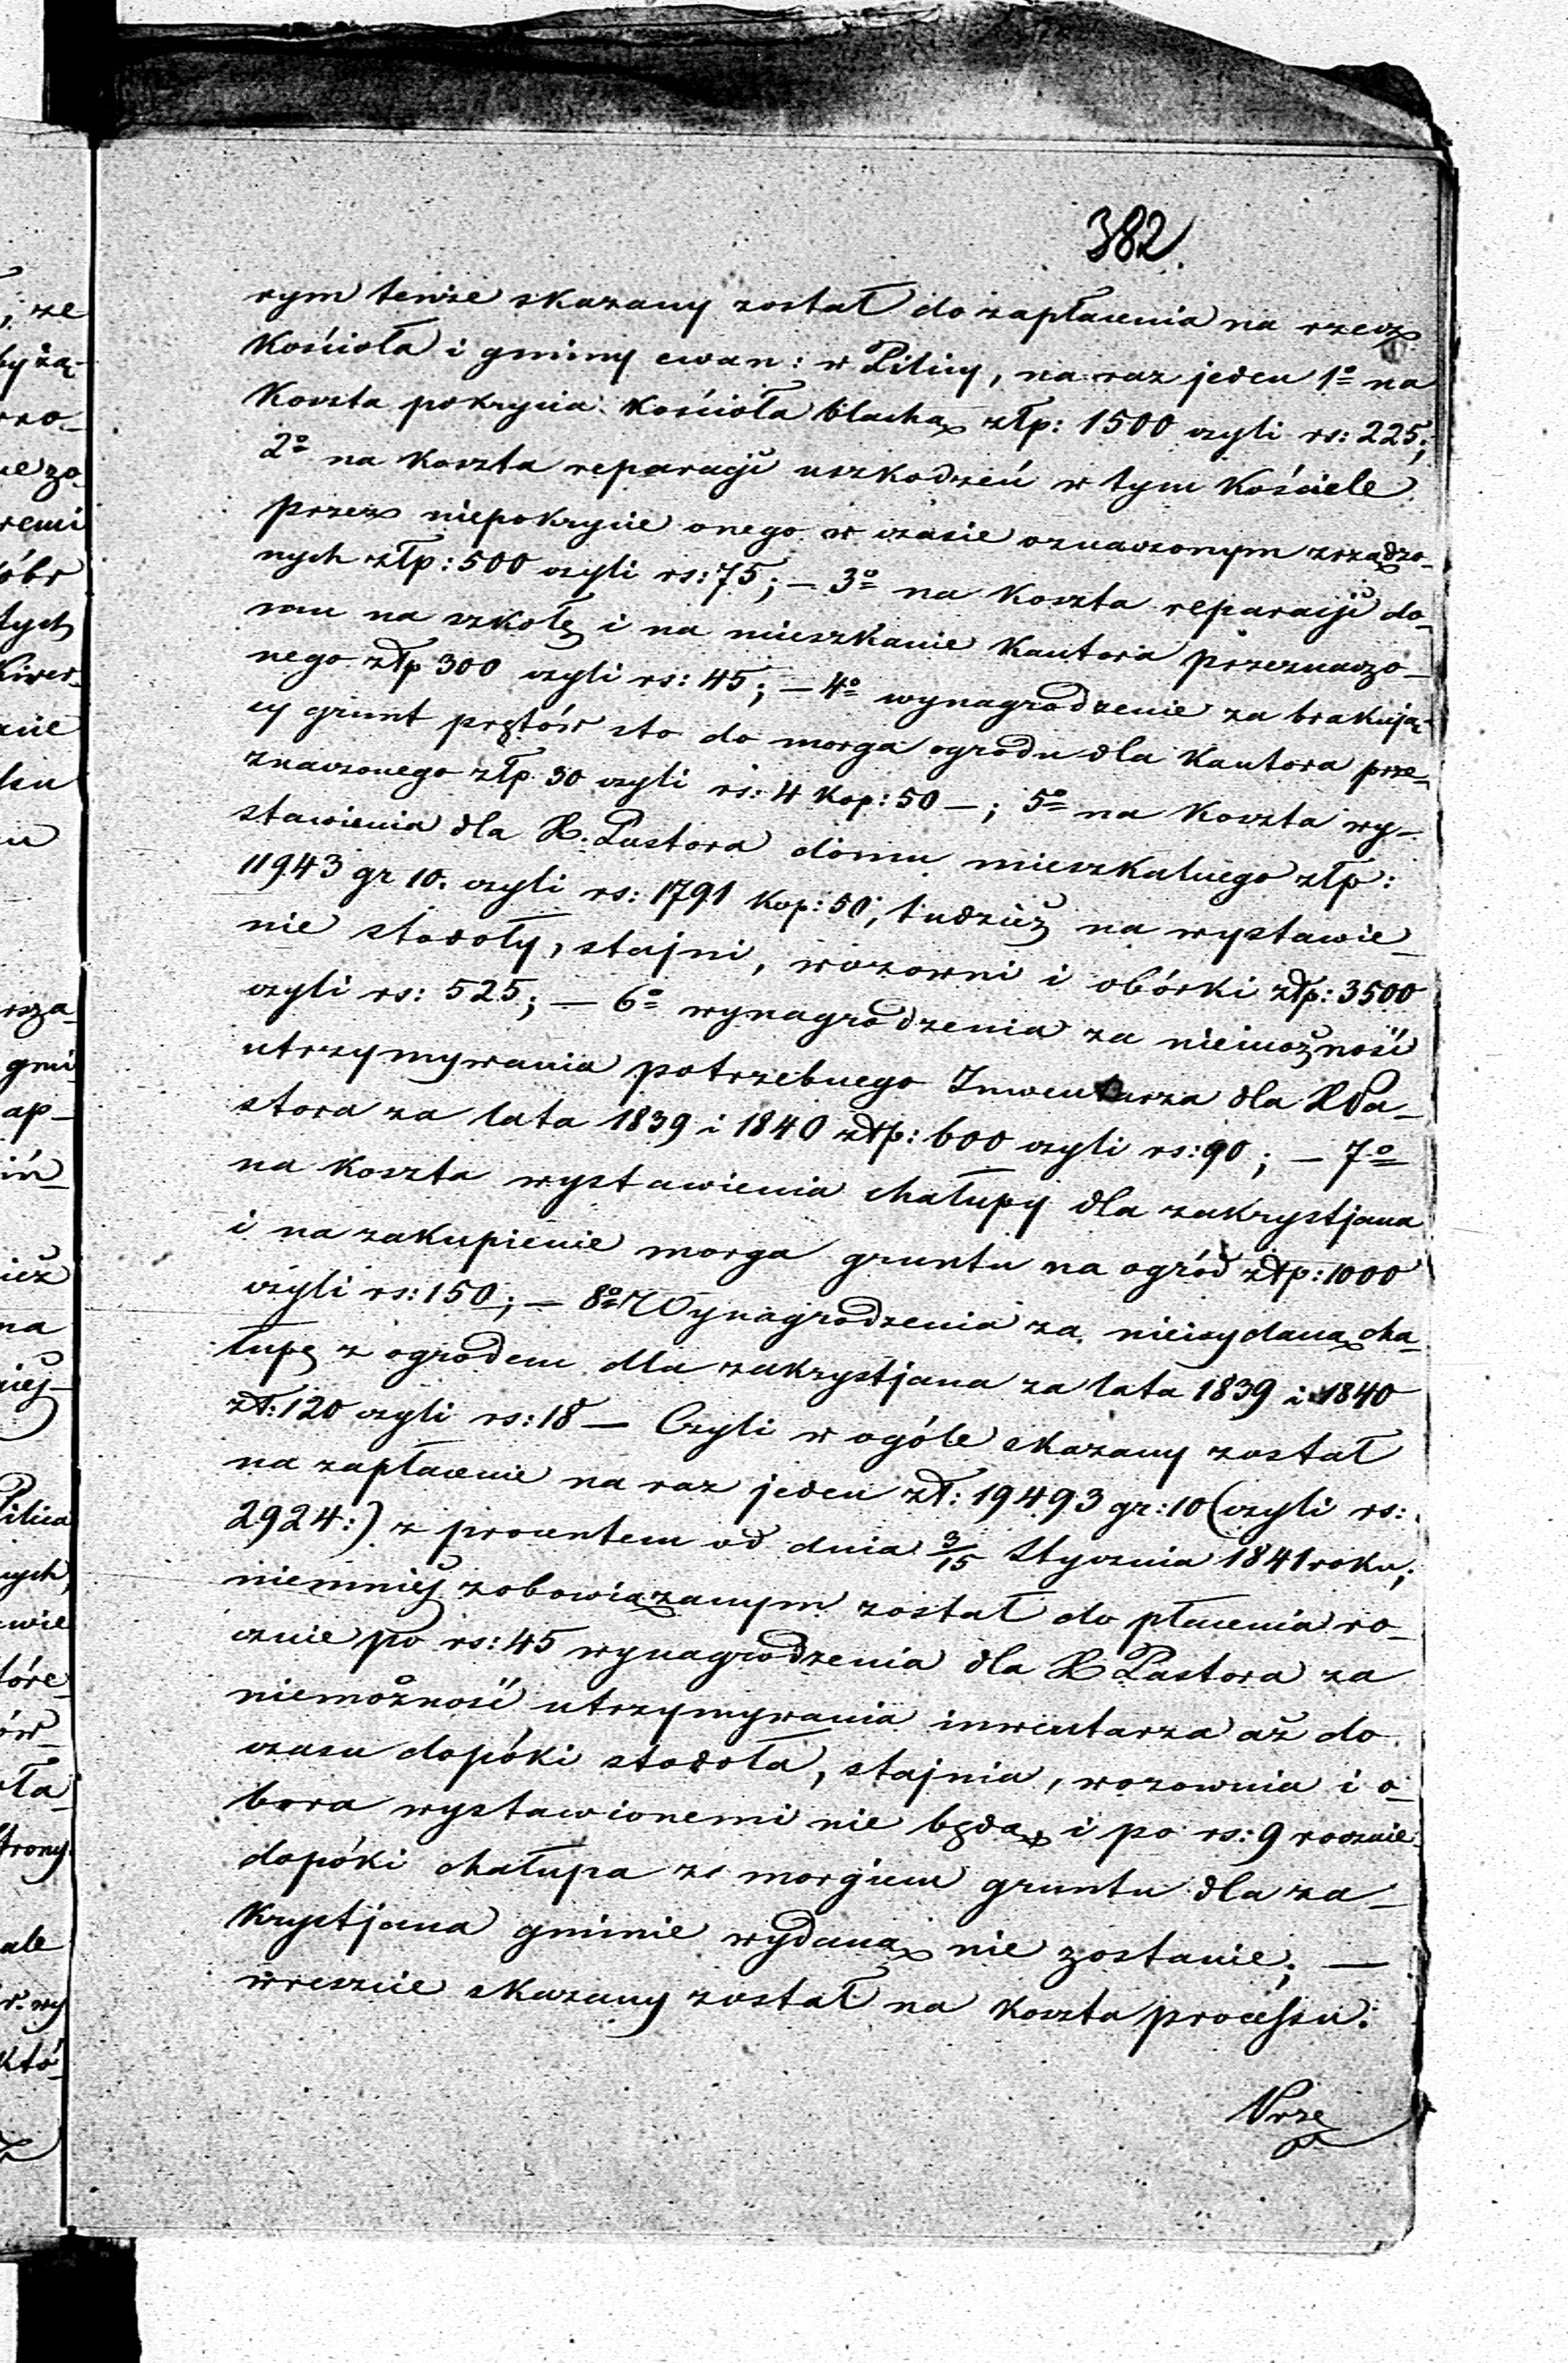 382.
rym tenże skazany został do zapłacenia na rzecz
Kościoła i gminy ewan: w Pilicy, na raz jeden 1º na
Koszta pokrycia Kościoła blachą złp: 1500 czyli rs: 225;
2º na koszta reparacji uszkodzeń w tym Kościele
przez niepokrycie onego w czasie oznaczonym zrządzo-
nych złp: 500 czyli rs: 75; — 3º na Koszta reparacji do-
mu na szkołę i na mieszkanie Kantora przeznaczo-
nego złp 300 czyli rs: 45; — 4º wynagrodzenie za brakują-
cy grunt prętów sto do morga ogrodu dla Kantora prze-
znaczonego złp. 30 czyli rs: 4 Kop: 50 —; 5º na Koszta wy-
stawienia dla X. Pastora domu mieszkalnego złp:
11943 gr 10. czyli rs: 1791 Kop: 50; tudzież na wystawie-
nie stodoły, stajni, wozowni i obórki złp: 3500
czyli rs: 525; — 6º wynagrodzenia za niemożność
utrzymywania potrzebnego Inwentarza dla X Pa-
stora za lata 1839 i 1840 złp: 600 czyli rs: 90; — 7º
na koszta wystawienia chałupy dla zakrystjana
i na zakupienie morga gruntu na ogród złp: 1000
czyli rs: 150; — 8º Wynagrodzenia za niewydaną cha-
łupę z ogrodem dla zakrystjana za lata 1839 i 1840
zł: 120 czyli rs: 18 — Czyli w ogóle skazany został
na zapłacenie na raz jeden zł: 19493 gr: 10 (czyli rs:
2924:) z procentem od dnia 3/15 Stycznia 1841 roku;
niemniej zobowiązanym został do płacenia ro-
cznie po rs: 45 wynagrodzenia dla X Pastora za
niemożność utrzymywania inwentarza aż do
czasu dopóki stodoła, stajnia, wozownia i o-
bora wystawionemi nie będą, i po rs: 9 rocznie
dopóki chałupa z morgiem gruntu dla za-
Krystjana gminie wydaną nie zostanie; —
wreszcie skazany został na koszta processu.
Prze